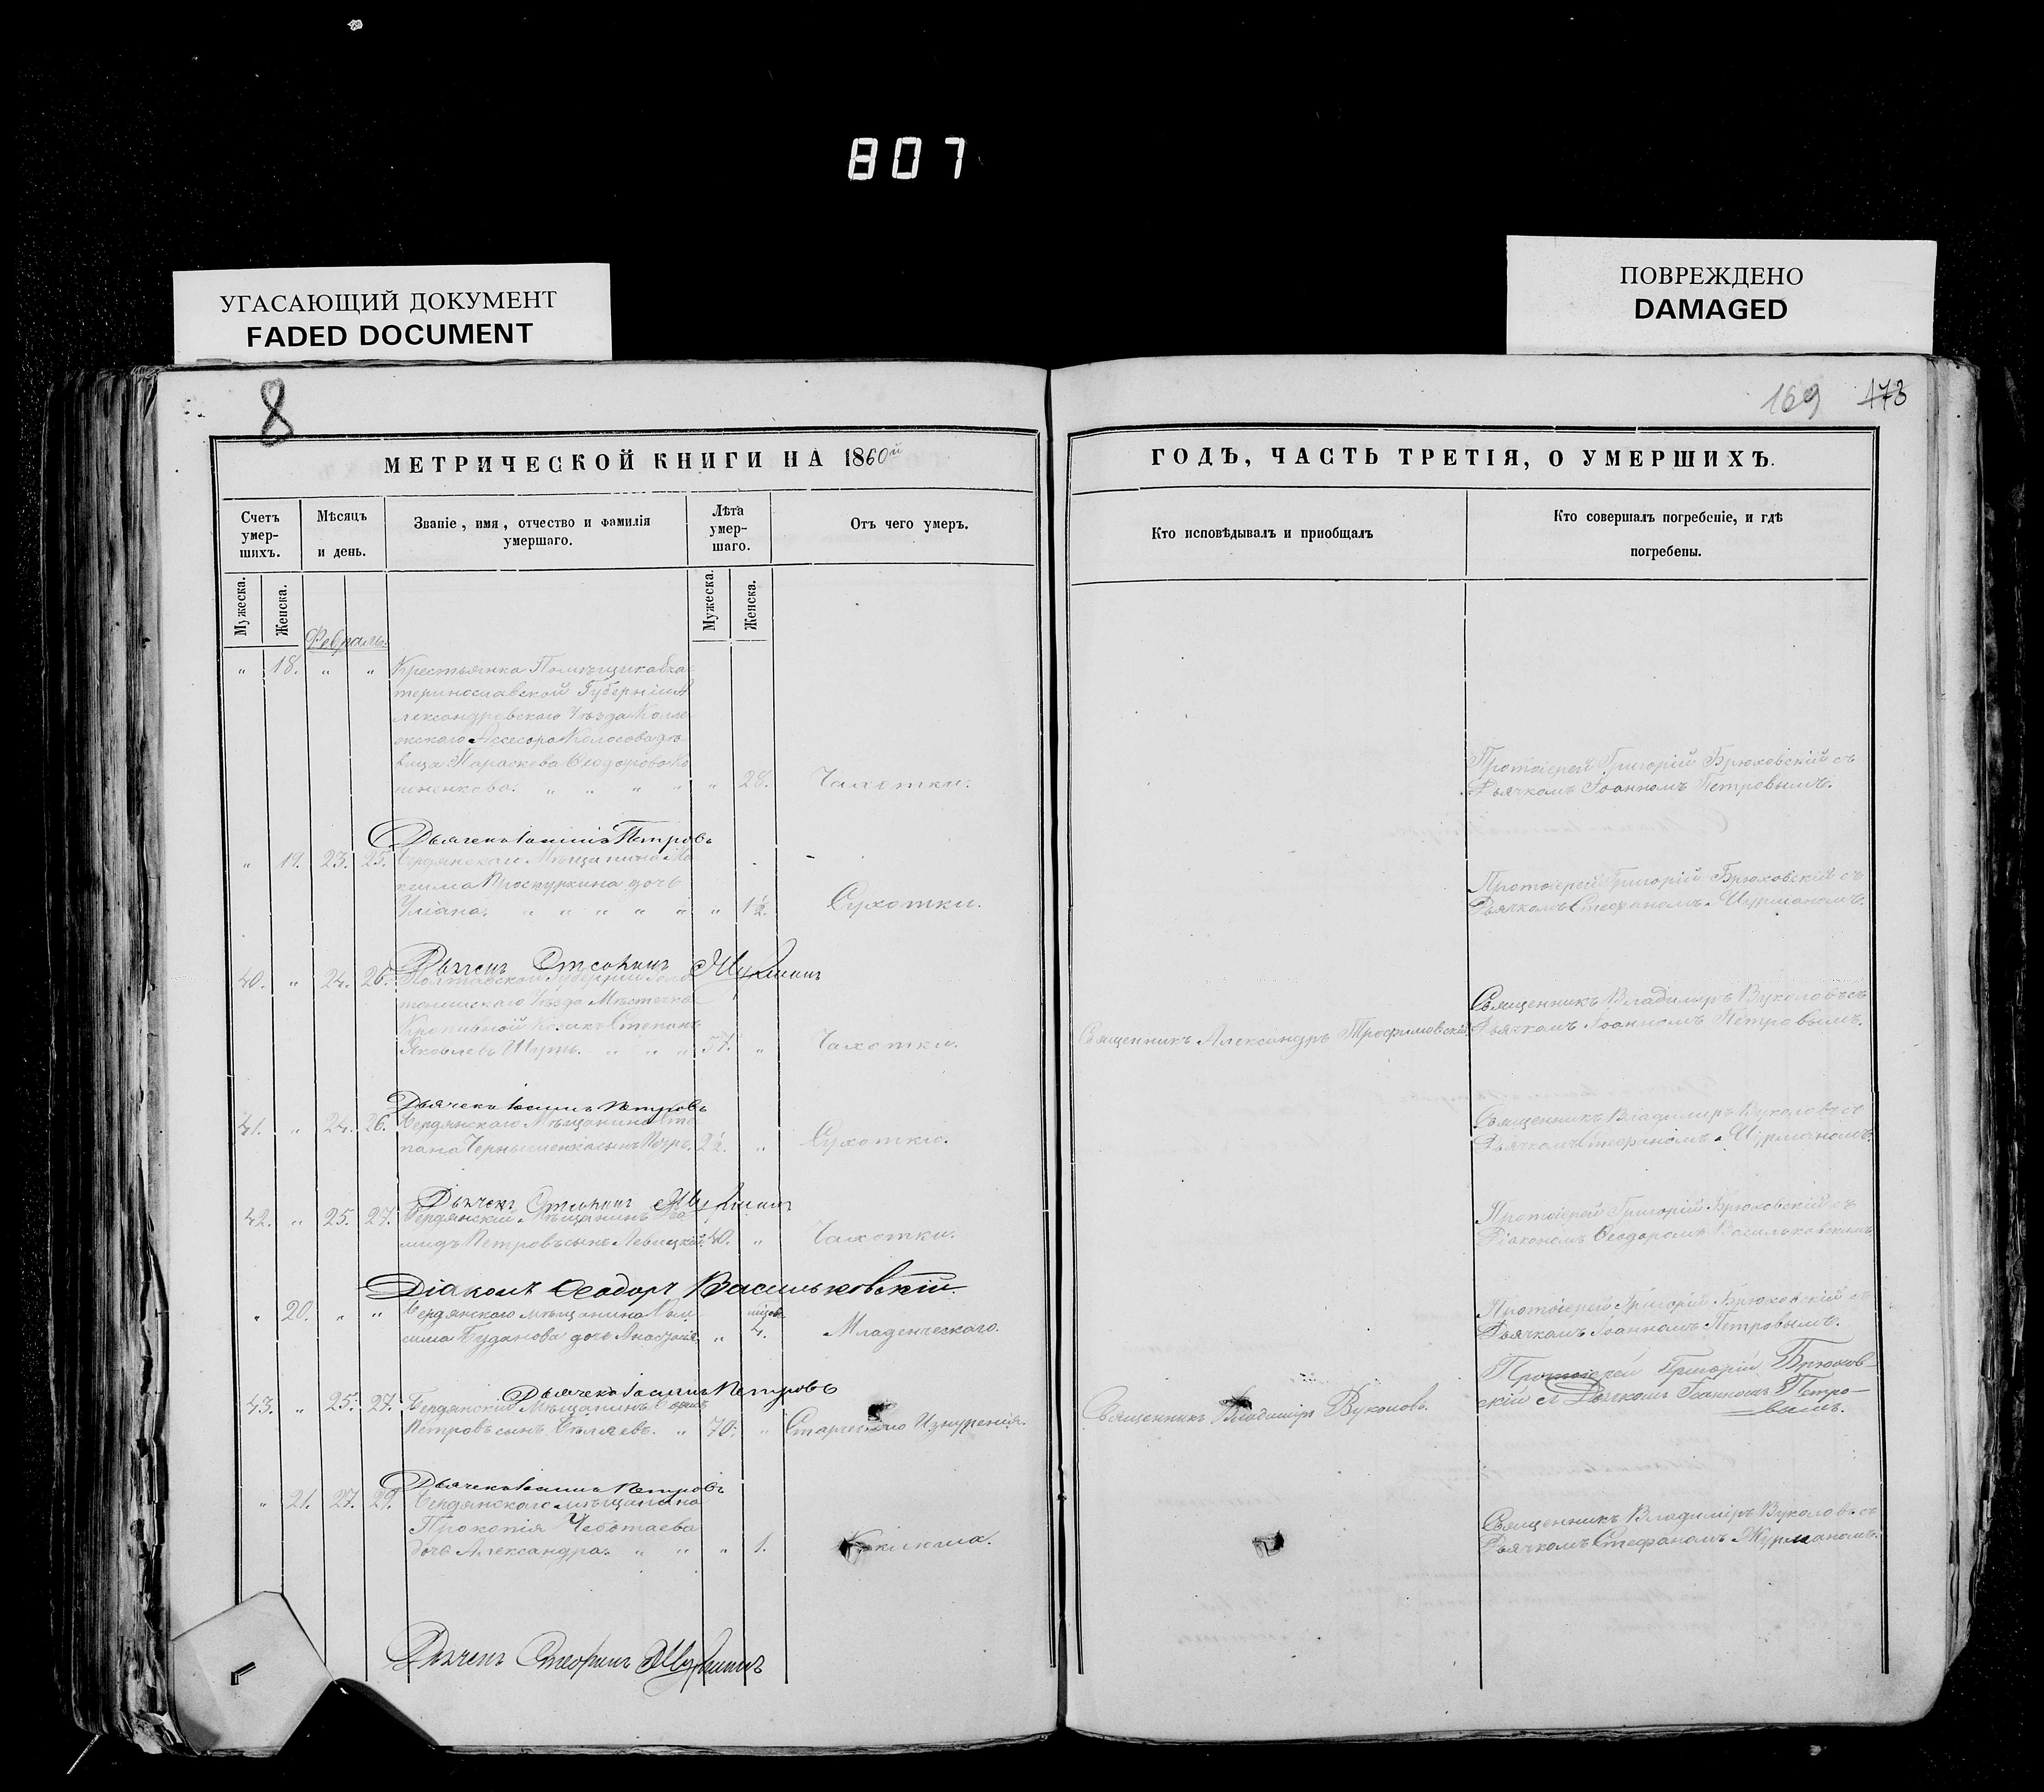 807
УГАСАЮЩИЙ ДОКУМЕНТ
FADED DOCUMENT
ПОВРЕЖДЕНО
DAMAGED
8
169 173
МЕТРИЧЕСКОЙ КНИГИ НА 1860й
ГОДЪ, ЧАСТЬ ТРЕТІЯ, О УМЕРШИХЪ.
Счетъ умер-шихъ.
Мѣсяцъ и день.
Званіе, имя, отчество и фамилія умершаго.
Лѣта умер-шаго.
Отъ чего умеръ.
Кто исповѣдывалъ и пріобщалъ
Кто совершалъ погребеніе, и гдѣ погребены.
Мужеска. Женска.
Мужеска. Женска.
Февраль.
" 18. " " Крестьянка Помѣщика Ека-
теринославской Губерніи А
лександровскаго Уѣзда Колле-
жскаго Ассесора Колосова дѣ-
вица Параскева Ѳеодорова
" " " " " 28. Чахотки.
Протоіерей Григорій Брюховскій съ
Дьячкомъ Іоанномъ Петровымъ.
Дьячекъ Іоаннъ Петровъ
" 19. 23. 25. Бердянскаго Мѣщанина Ма
ксима Проскуркина дочь
Уліана. " " " " " " 1½. Сухотки.
Протоіерей Григорій Брюховскій съ
Дьячкомъ Стефаномъ Журманомъ.
Дьячекъ Стефанъ Журманъ
40. " 24. 26. Полтавской Губерніи Золо
тоношскаго Уѣзда Мѣстечка
Кропивной Козакъ Степанъ
Яковлевъ " " " 57. " Чахотки.
Священникъ Александръ Трофимовскій
Священникъ Владиміръ Вуколовъ съ
Дьячкомъ Іоанномъ Петровымъ.
Дьячекъ Іоаннъ Петровъ
41. " 24. 26. Бердянскаго Мѣщанина Сте
пана сынъ Петръ. 2½. " Сухотки.
Священникъ Владиміръ Вуколовъ съ
Дьячкомъ Стефаномъ Журманомъ.
Дьячекъ Стефанъ Журманъ
42. " 25. 27. Бердянскій Мѣщанинъ
Петровъ сынъ Левицкій. 40. " Чахотки.
Протоіерей Григорій Брюховскій съ
Діакономъ Ѳеодоромъ Васильковскимъ
Діаконъ Ѳеодоръ Васильковскій.
" 20. " " Бердянскаго мѣщанина
Буданова дочь Анастасія " 4. Младенческаго.
Протоіерей Григорій Брюховскій съ
Дьячкомъ Іоанномъ Петровымъ.
Дьячекъ Іоаннъ Петровъ
43. " 25. 27. Бердянскій Мѣщанинъ
Петровъ сынъ Бѣляевъ. " 70. " Старческаго Изнуренія.
Священникъ Владиміръ Вуколовъ.
Протоіерей Григорій Брюхов-
скій съ Дьячкомъ Іоанномъ Петро-
вымъ.
Дьячекъ Іоаннъ Петровъ
" 21. 27. 29. Бердянскаго мѣщанина
Прокопія Чеботаева
дочь Александра. " " " 1. Коклюша.
Священникъ Владиміръ Вуколовъ съ
Дьячкомъ Стефаномъ Журманомъ.
Дьячекъ Стефанъ Журманъ